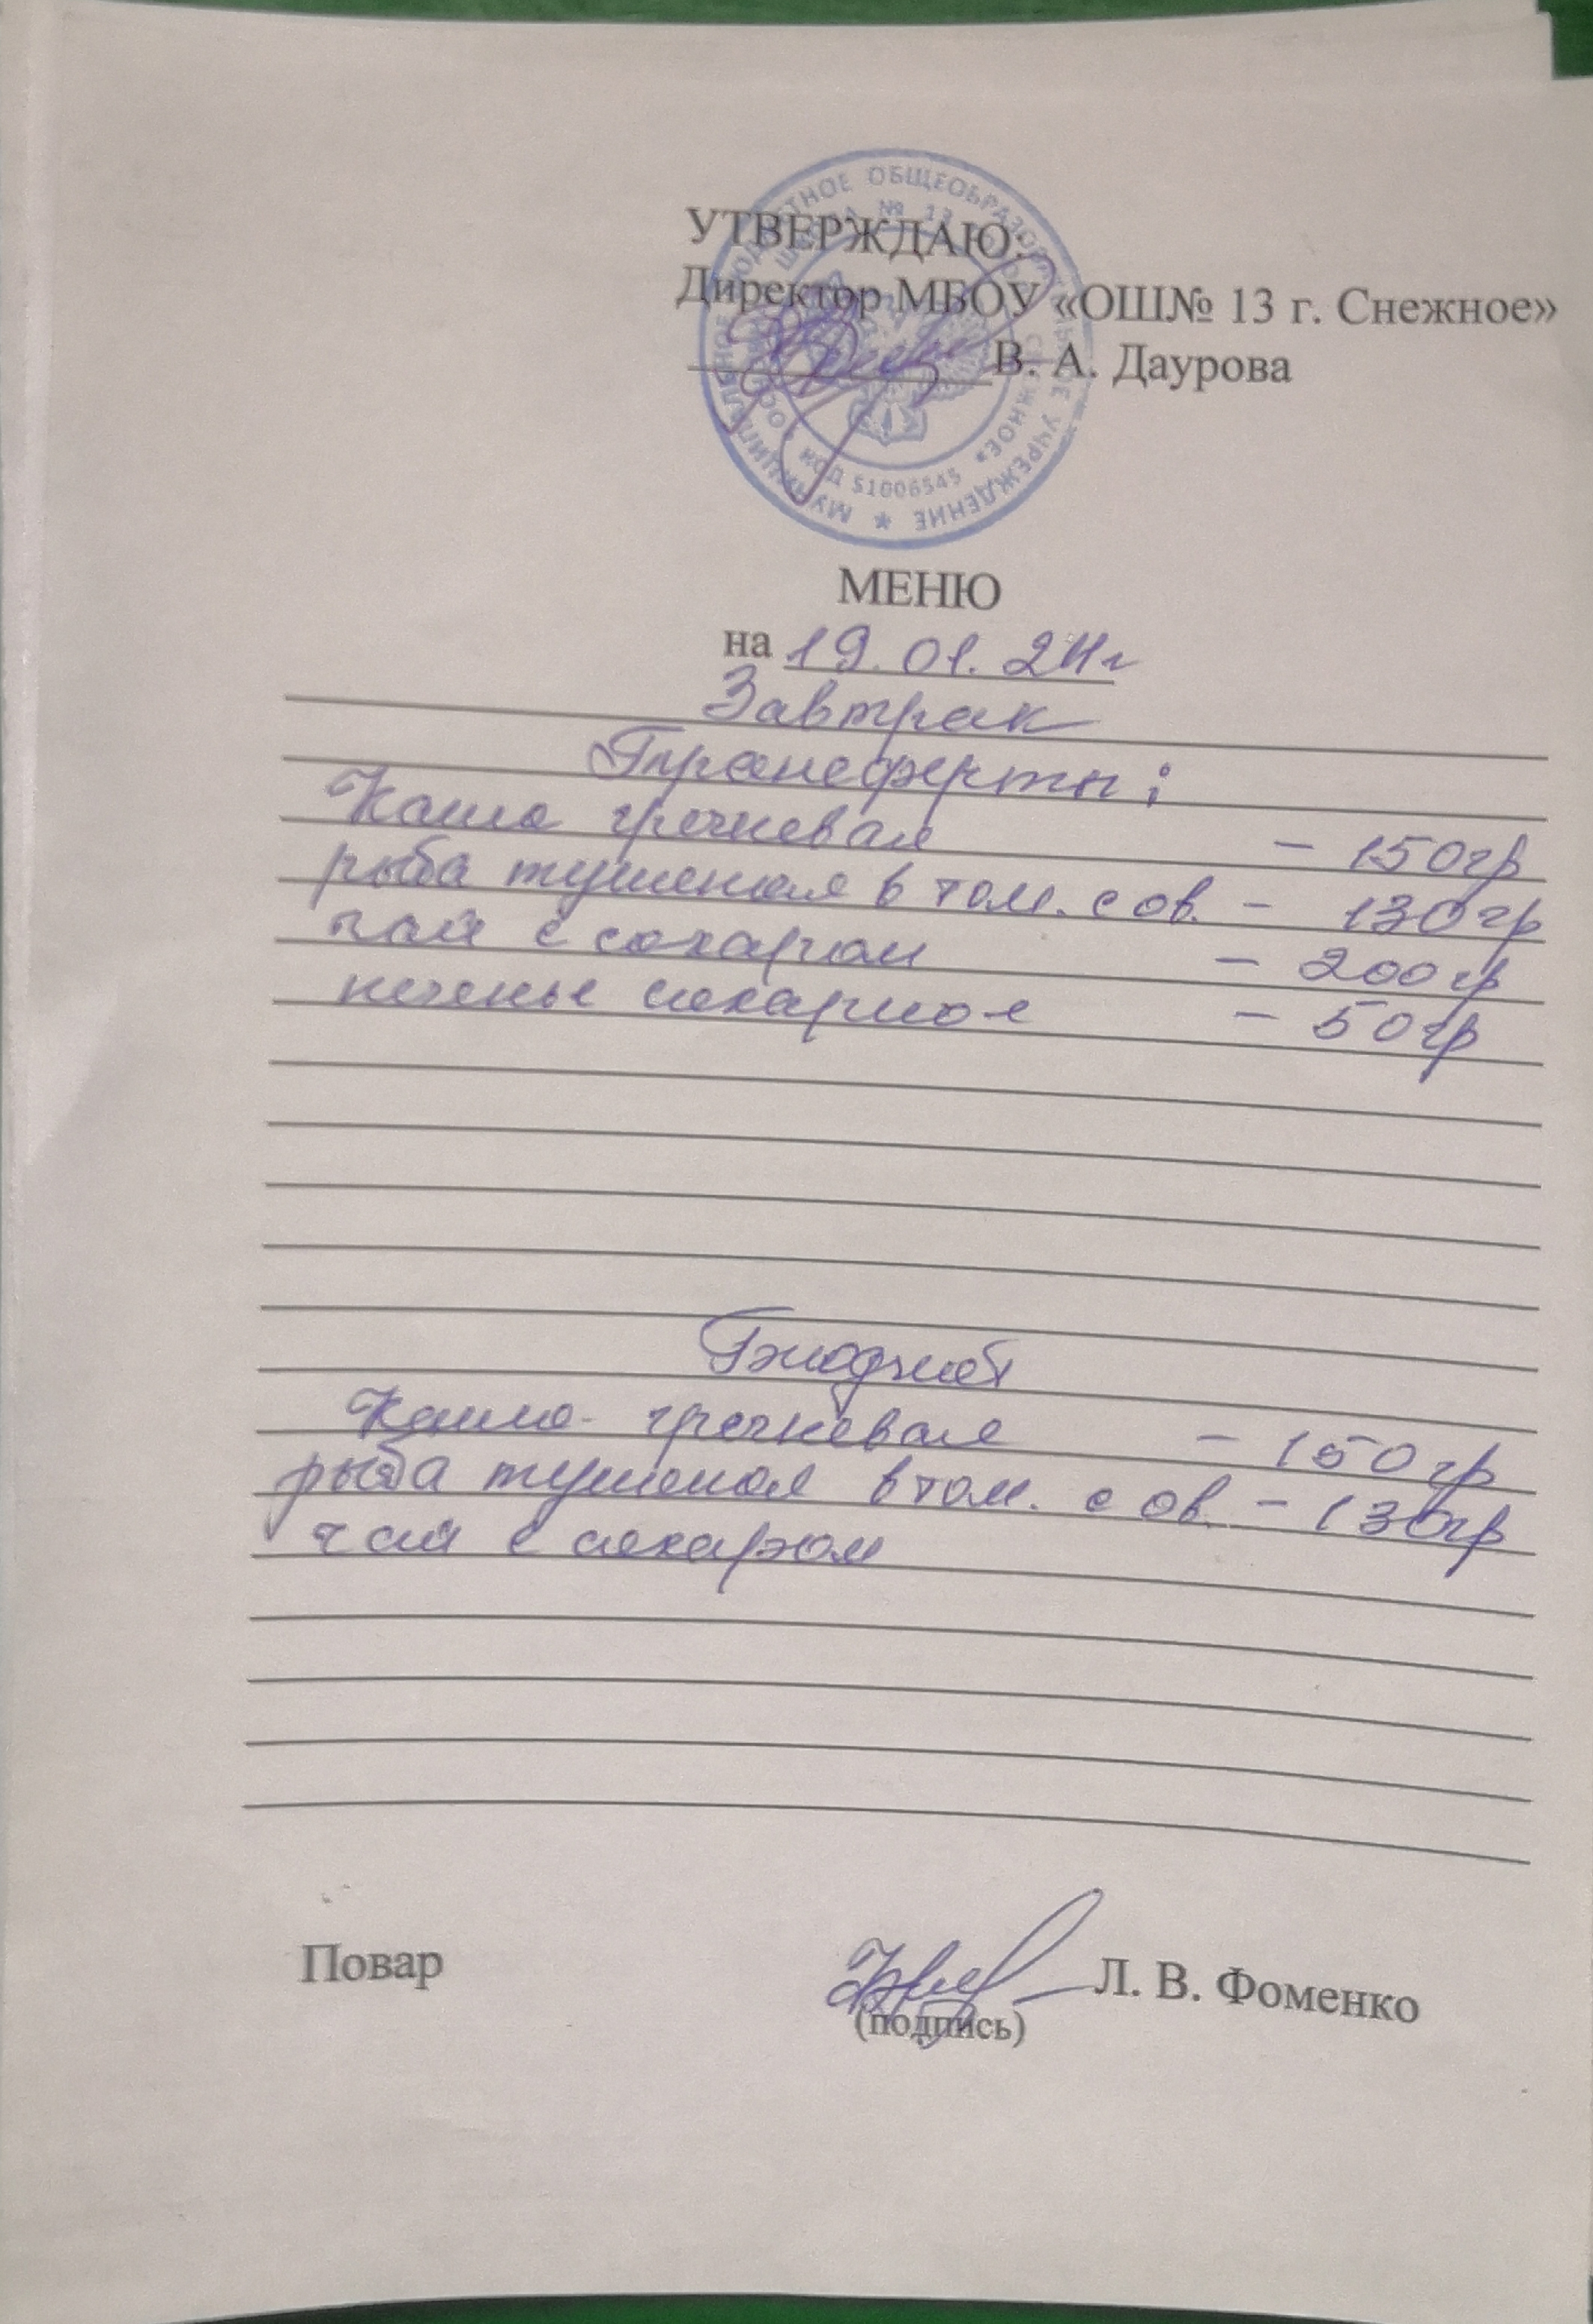 МУНИЦИПАЛЬНОЕ БЮДЖЕТНОЕ ОБЩЕОБРАЗОВАТЕЛЬНОЕ УЧРЕЖДЕНИЕ *
ШКОЛА № 13
СНЕЖНОЕ»
КОД 51006545
УТВЕРЖДАЮ:
Директор МБОУ «ОШ№ 13 г. Снежное»
В. А. Даурова
МЕНЮ
на 19.01.24г
Завтрак
Трансферты:
Каша гречневая - 150гр
рыба тушеная в том. с ов. - 130гр
чай с сахаром - 200гр
печенье сахарное - 50гр
Бюджет
Каша гречневая - 150гр
рыба тушеная в том. с ов. - 130гр
чай с сахаром
Повар Л. В. Фоменко
(подпись)